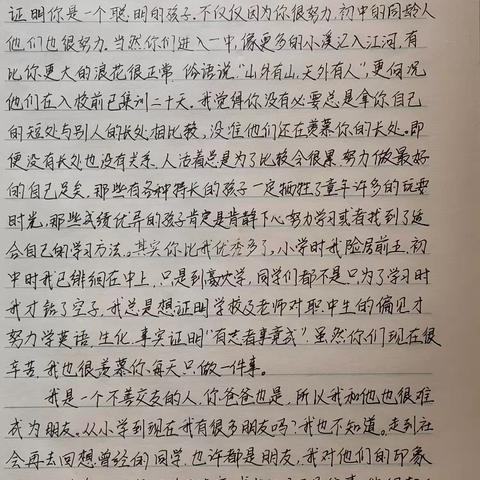 证明你是一个聪明的孩子.不仅仅因为你很努力.初中的同龄人
他们也很努力.当然你们进入一中,像更多的小溪汇入江河,有
比你更大的浪花很正常 俗语说"山外有山,天外有人",更何况
他们在入校前已集训二十天。我觉得你没有必要总是拿你自己
的短处与别人的长处相比较,没准他们还在羡慕你的长处。即
便没有长处也没有关系.人活着总是为了比较会很累.努力做最好
的自己足矣.那些有各种特长的孩子一定牺牲了童年许多的玩耍
时光,那些成绩优异的孩子肯定是肯静下心努力学习或者找到了适
合自己的学习方法。其实你比我优秀多了,小学时我险居前五.初
中时我已徘徊在中上.只是到高中学,同学们都不是只为了学习时
我才钻了空子,我总是想证明学校及老师对职中生的偏见才
努力学英语.生化.事实证明"有志者事竟成".虽然你们现在很
辛苦.我也很羡慕你每天只做一件事。
我是一个不善交友的人.你爸爸也是.所以我和他也很难
成为朋友。从小学到现在我有很多朋友吗?我也不知道。走到社
会再去回想曾经的同学.也许都是朋友,我对他们的印象